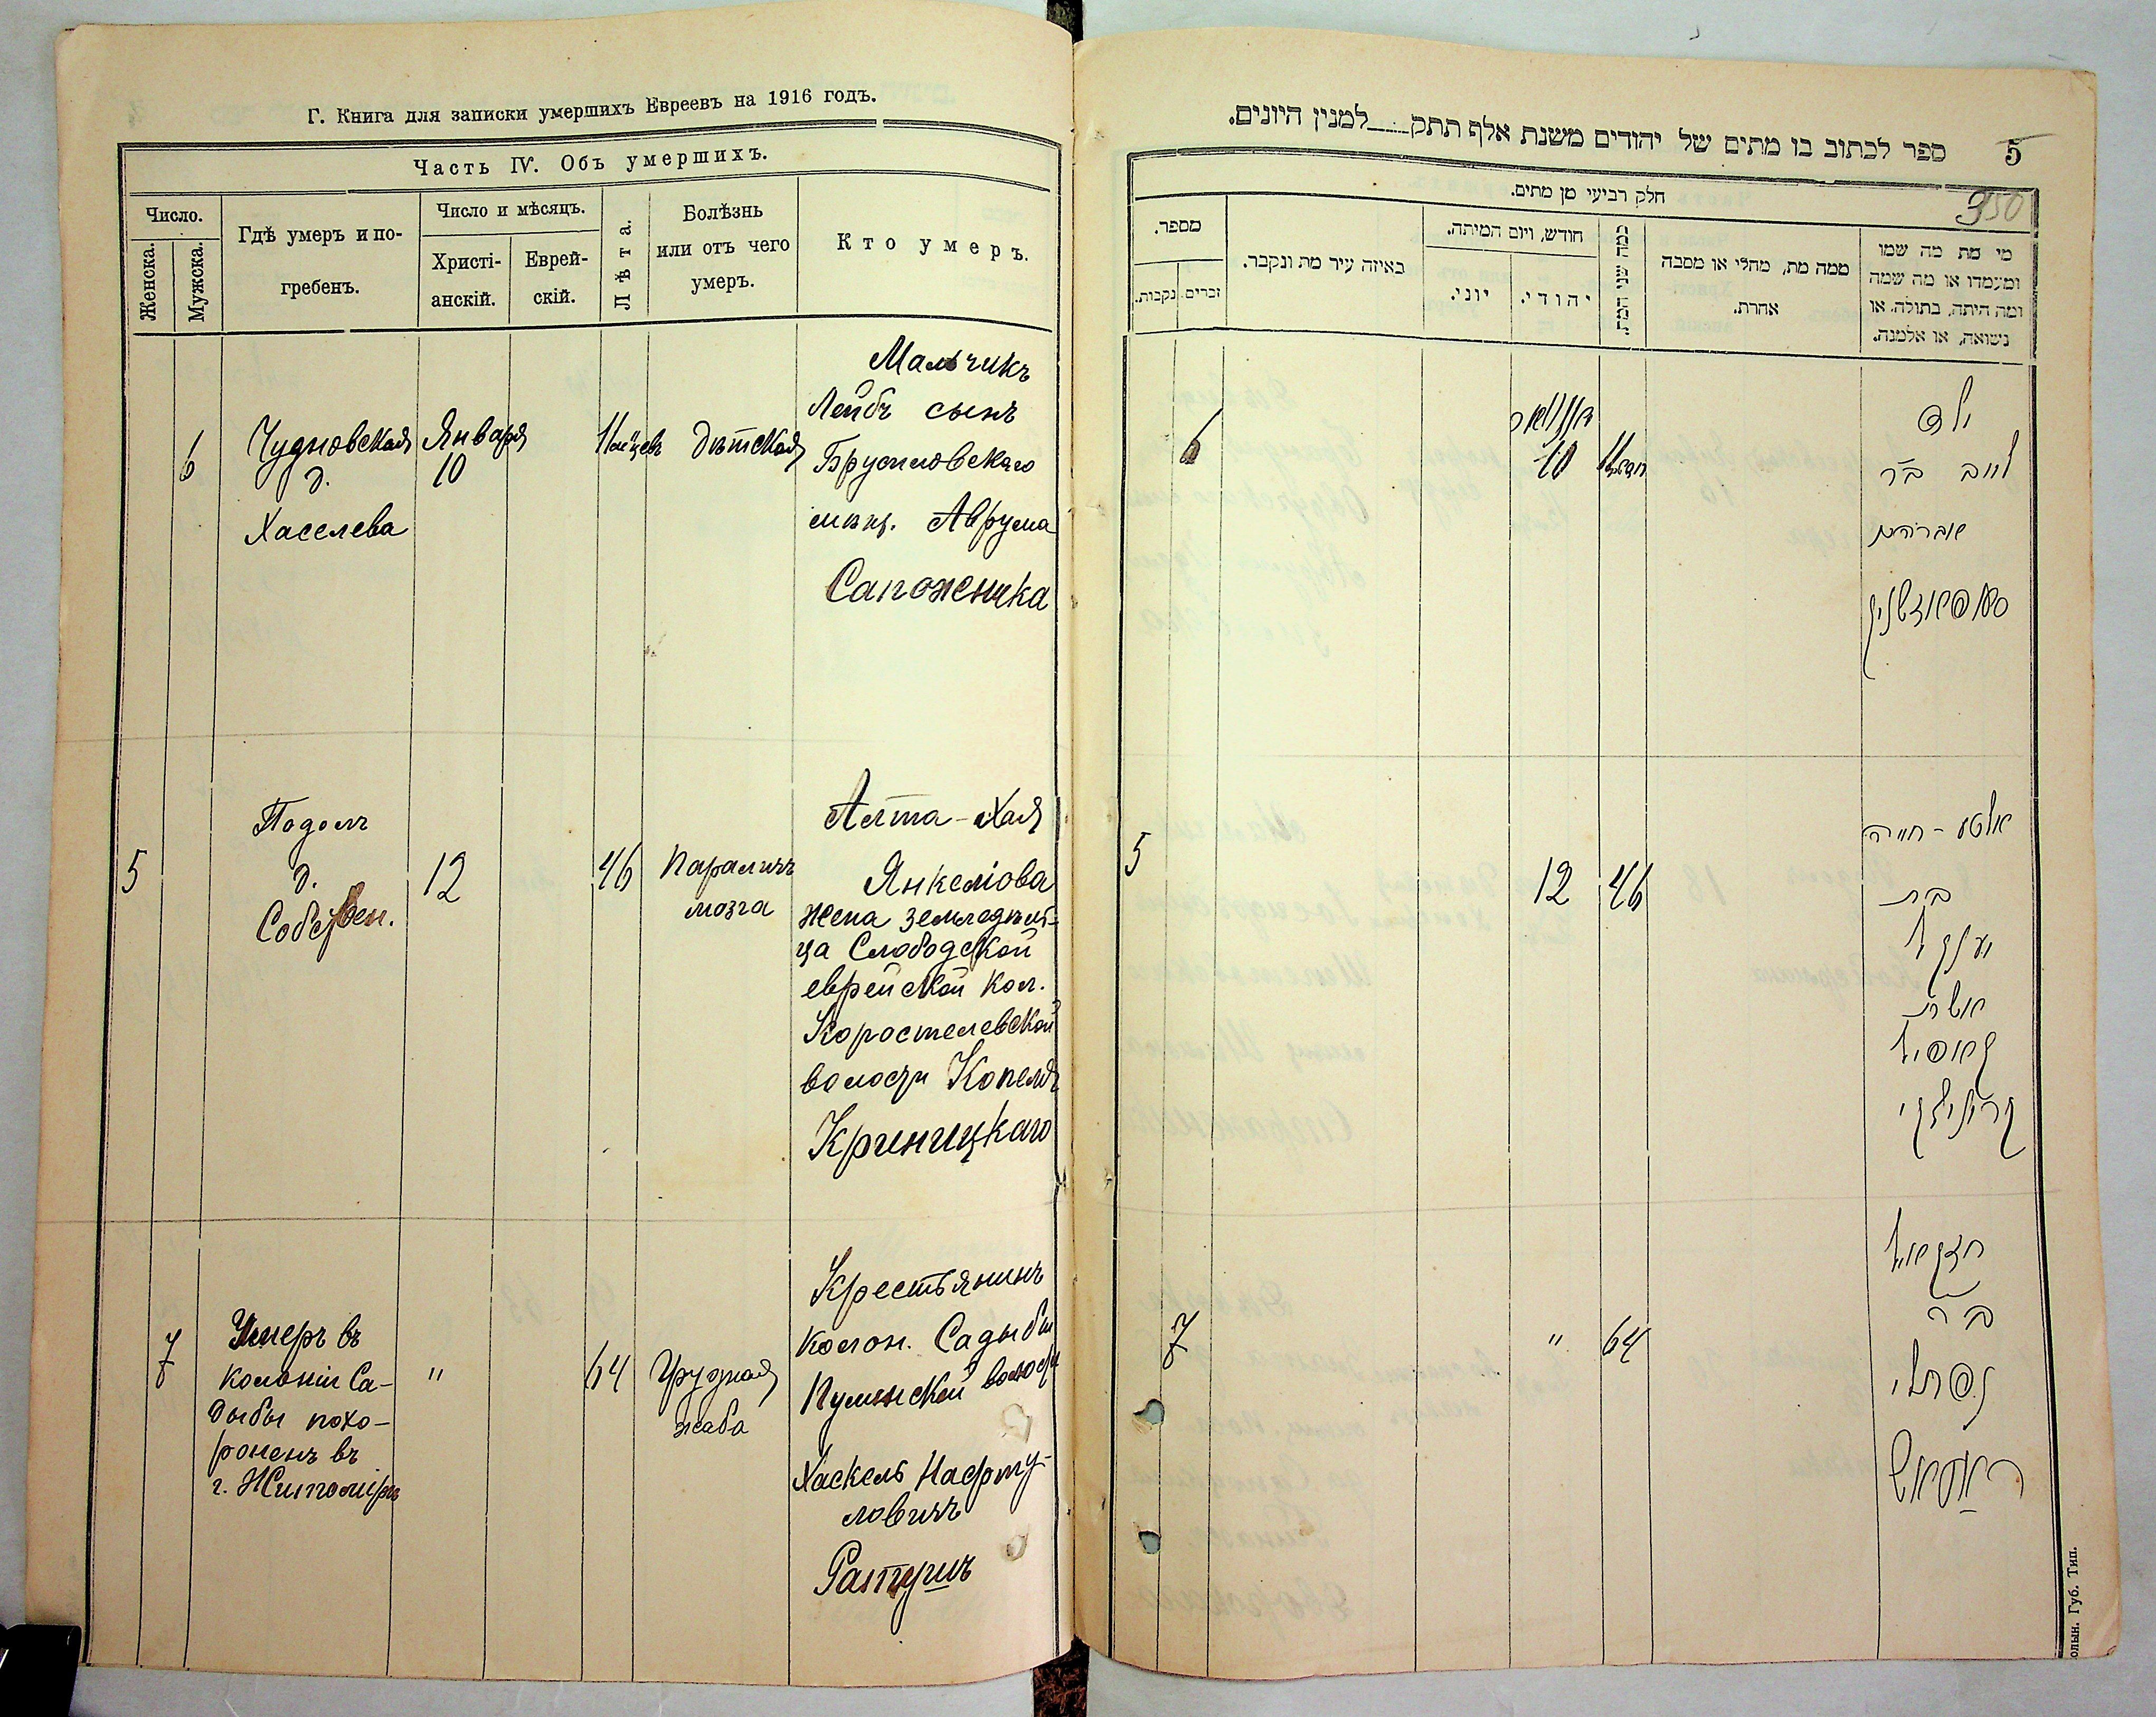 Г. Книга для записки умершихъ Евреевъ на 1916 годъ.
Часть IV. Объ умершихъ.
Число.
Женска.
Мужска.
Гдѣ умеръ и по-
гребенъ.
Число и мѣсяцъ.
Христі-
анскій.
Еврей-
скій.
Лѣта.
Болѣзнь
или отъ чего
умеръ.
Кто умеръ.
6
Чудновская
д.
Хаселева
Января
10
11 мѣсяцевъ
дѣтская
Мальчикъ
Лейбъ сынъ
Брусиловскаго
мѣщ. Аврума
Сапожника
5
Подолъ
д.
Собствен.
12
46
параличъ
мозга
Алта-Хая
Янкелiова
жена земледѣль-
ца Слободской
еврейской кол.
Коростелевской
волости Копеля
Криницкаго
7
Умеръ въ
колонiи Са-
дыбы похо-
роненъ въ
г. Житомiрѣ
"
64
Грудная
жаба
Крестьянинъ
колон. Садыбы
Пулинской волости
Хаскель Нафту-
ловичъ
Ратушъ
ספר לכתוב בו מתים של יהודים משנת אלף תתק למנין היונים.
5
350
חלק רביעי מן מתים.
מספר.
נקבות.
זכרים.
באיזה עיר מת ונקבר.
חודש, ויום המיתה.
יוני.
יהודי.
כמה שני המת.
ממה מת, מחלי או מסבה
אחרת.
מי מת מה שמו
ומעמדו או מה שמה
ומה היתה, בתולה, או
נשואה, או אלמנה.
6
יאנואר
10
11 חדשים
ילד
לייב ב״ר
אברהם
סאפאזשניק
5
12
46
אלטע-חייה
בת
יענקל
אשת
קאפיל
קריניצקי
7
"
64
חצקאל
ב״ר
נפתלי
ראטאש
Волын. Губ. Тип.